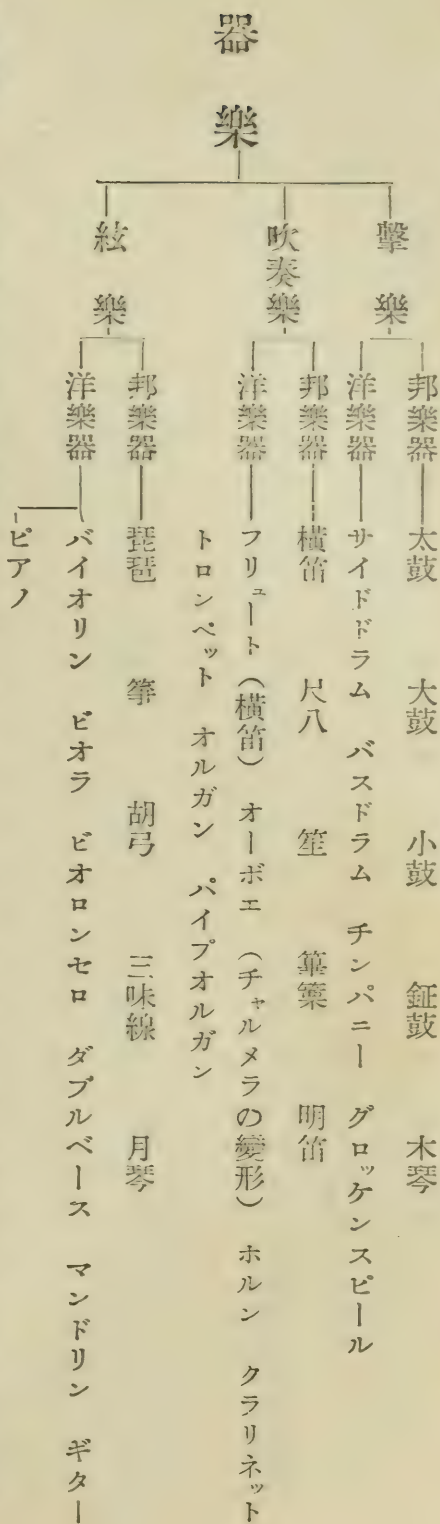 器樂
擊樂
邦樂器 太鼓 大鼓 小鼓 鉦鼓 木琴
洋樂器 サイドドラム バスドラム チンパニー グロッケンスピール
吹奏樂
邦樂器 橫笛 尺八 笙 篳篥 明笛
洋樂器 フリュート(橫笛) オーボエ (チャルメラの變形) ホルン クラリネット
トロンペット オルガン パイプオルガン
絃樂
邦樂器 琵琶 箏 胡弓 三味線 月琴
洋樂器 バイオリン ビオラ ビオロンセロ ダブルベース マンドリン ギター
ピアノ